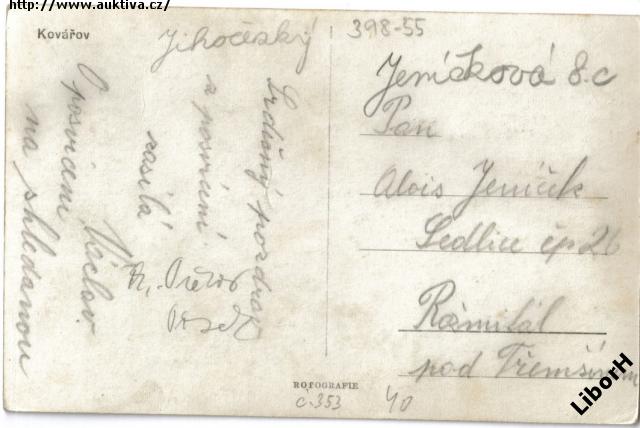 http://www.auktiva.cz/
Kovářov
Jihočeský
398-55
Srdečný pozdrav
z posvícení
zasílá
Václav.
O posvícení
na shledanou
Jeníčková 8.c
Pan
Alois Jeníček
Sedlice čp 26
Rožmitál
pod Třemšínem
ROTOGRAFIE
č.353
40
LiborH